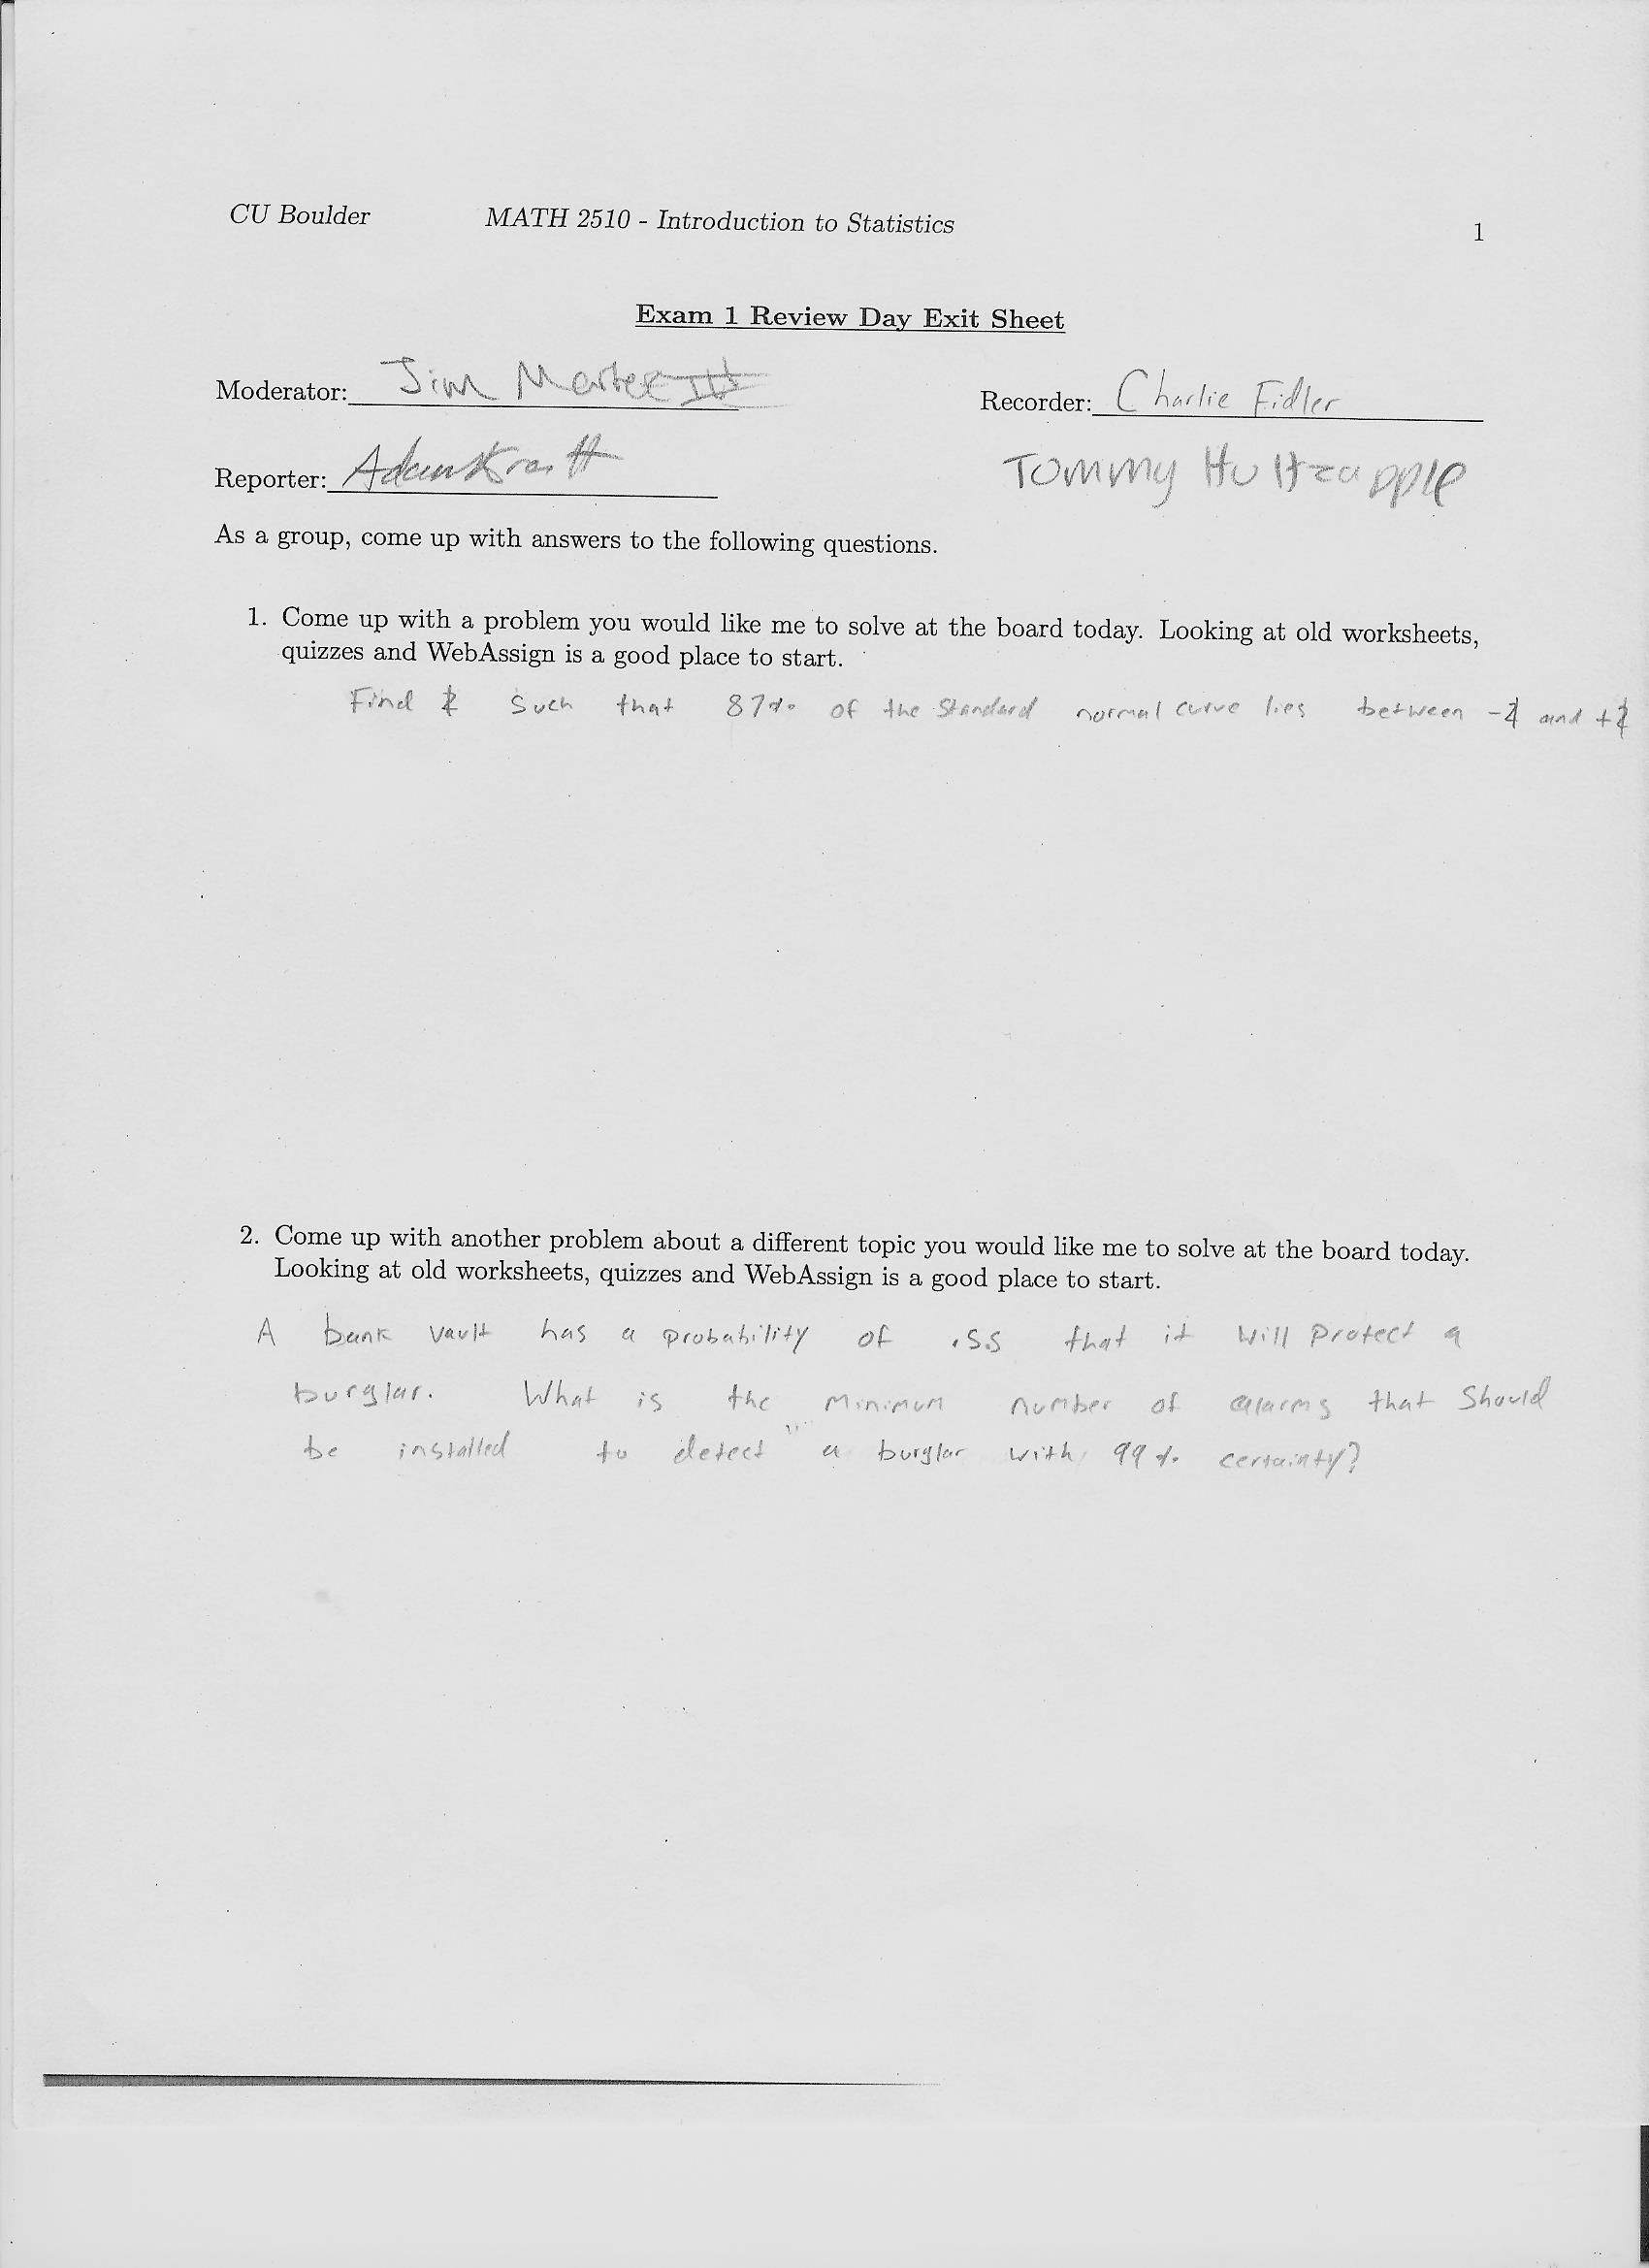 CU Boulder MATH 2510 - Introduction to Statistics 1
Exam 1 Review Day Exit Sheet
Moderator: Jim III Recorder: Charlie Fidler
Reporter: Adam Tommy Hultzapple
As a group, come up with answers to the following questions.
1. Come up with a problem you would like me to solve at the board today. Looking at old worksheets,
quizzes and WebAssign is a good place to start.
Find z such that 87% of the standard normal curve lies between -z and +z
2. Come up with another problem about a different topic you would like me to solve at the board today.
Looking at old worksheets, quizzes and WebAssign is a good place to start.
A bank vault has a probability of .55 that it will protect a
burglar. What is the minimum number of alarms that should
be installed to detect a burglar with 99% certainty?